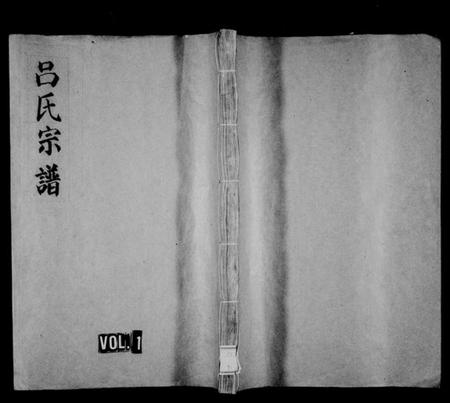 呂氏宗譜
VOL. 1